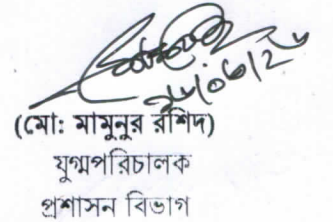 (মো: মামুনুর রশিদ)
যুগ্মপরিচালক
প্রশাসন বিভাগ